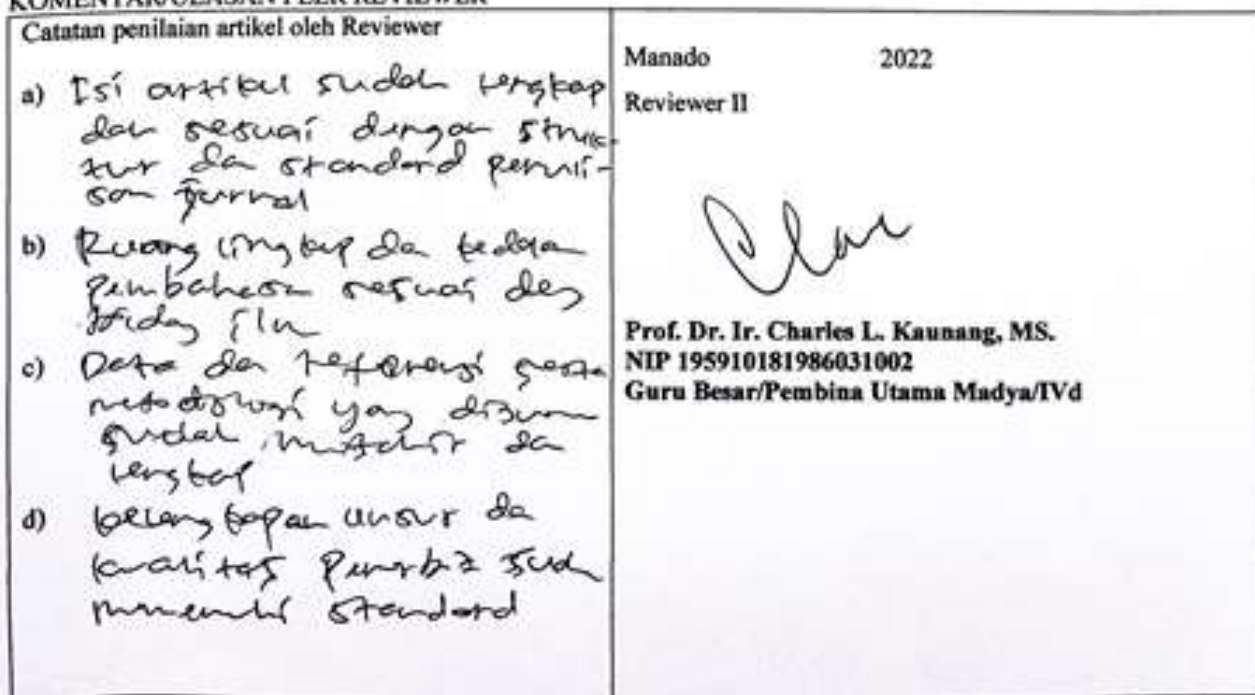 KOMENTAR/ULASAN PEER REVIEWER
Catatan penilaian artikel oleh Reviewer
a) Isi artikel sudah lengkap
dan sesuai dengan struk-
tur dan standard penuli-
san jurnal
b) Ruang lingkup da kedalaman
pembahasan sesuai deng
bidang ilmu
c) Data dan referensi serta
metodologi yang
sudah mutakhir dan
lengkap
d) kelengkapan unsur da
kualitas penerbit sudah
memenuhi standard
Manado 2022
Reviewer II
Prof. Dr. Ir. Charles L. Kaunang, MS.
NIP 195910181986031002
Guru Besar/Pembina Utama Madya/IVd